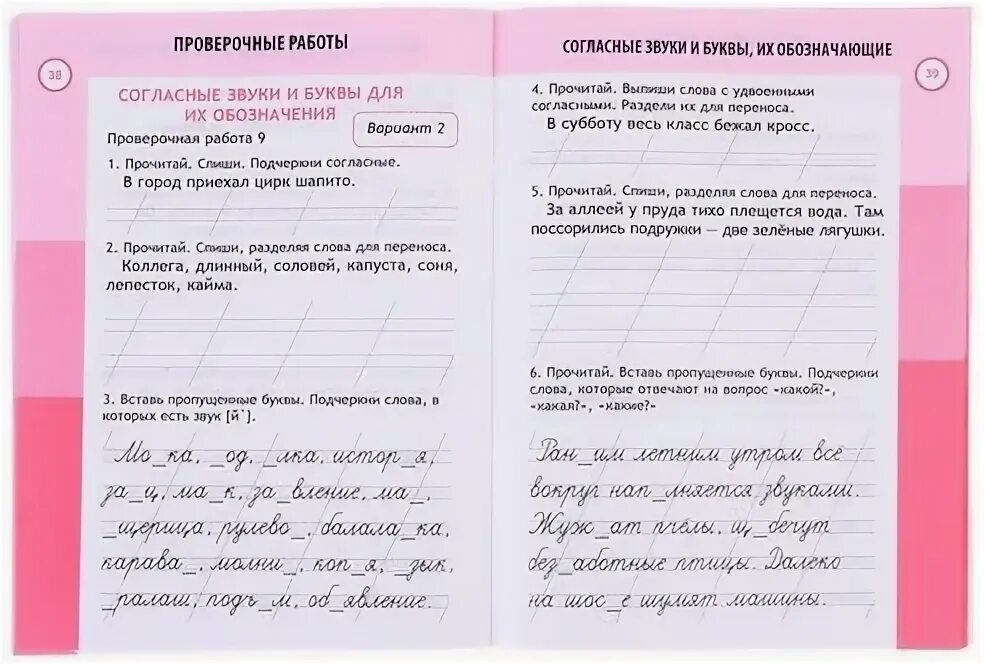 ПРОВЕРОЧНЫЕ РАБОТЫ
38
СОГЛАСНЫЕ ЗВУКИ И БУКВЫ ДЛЯ
ИХ ОБОЗНАЧЕНИЯ
Проверочная работа 9
Вариант 2
1. Прочитай. Спиши. Подчеркни согласные.
В город приехал цирк шапито.
2. Прочитай. Спиши, разделяя слова для переноса.
Коллега, длинный, соловей, капуста, соня,
лепесток, кайма.
3. Вставь пропущенные буквы. Подчеркни слова, в
которых есть звук [й'].
Мо_ка, _од, _лка, истор_я,
за_ц, ма_к, за_вление, ма_,
_щерица, рулево_, балала_ка,
карава_, молни_, коп_я, _зык,
_ралаш, подъ_м, об_явление.
СОГЛАСНЫЕ ЗВУКИ И БУКВЫ, ИХ ОБОЗНАЧАЮЩИЕ
39
4. Прочитай. Выпиши слова с удвоенными
согласными. Раздели их для переноса.
В субботу весь класс бежал кросс.
5. Прочитай. Спиши, разделяя слова для переноса.
За аллеей у пруда тихо плещется вода. Там
поссорились подружки — две зелёные лягушки.
6. Прочитай. Вставь пропущенные буквы. Подчеркни
слова, которые отвечают на вопрос «какой?»,
«какая?», «какие?»
Ран_им летним утром всё
вокруг нап_лняется звуками.
Жужж_ат пчёлы, щ_бечут
без_аботные птицы. Далеко
на шос_е шумят машины.